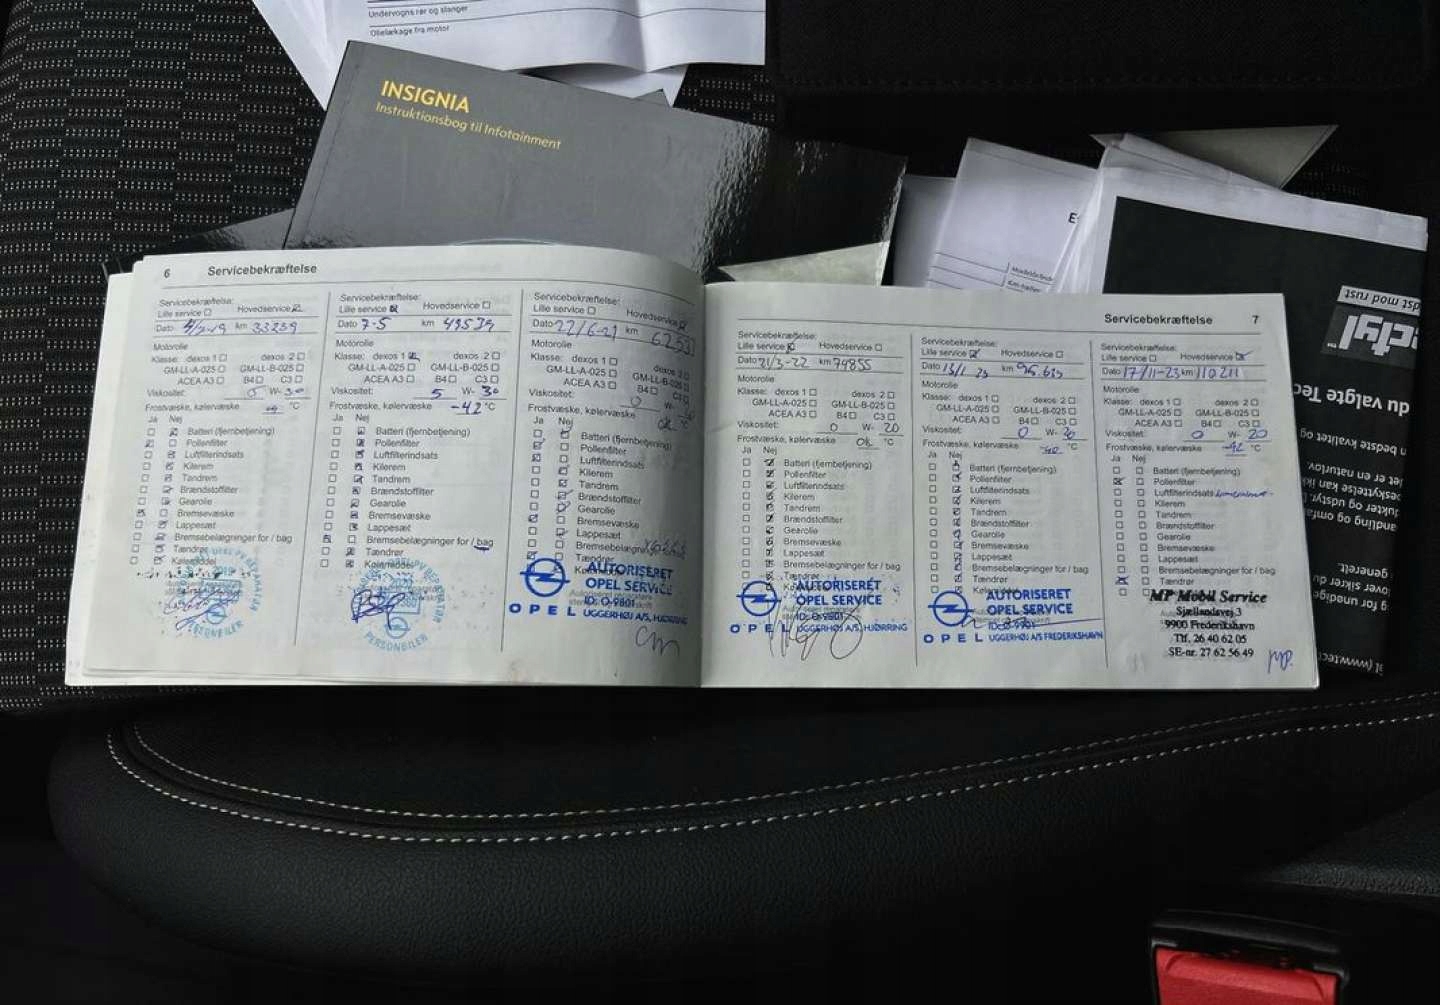 Undervogns rør og slanger
Olielækage fra motor
INSIGNIA
Instruktionsbog til Infotainment
6 Servicebekræftelse
Servicebekræftelse:
Lille service Hovedservice
Dato km 33239
Motorolie
Klasse: dexos 1 dexos 2
GM-LL-A-025 GM-LL-B-025
ACEA A3 B4 C3
Viskositet: 0 W- 30
Frostvæske, kølervæske °C
Ja Nej
Batteri (fjernbetjening)
Pollenfilter
Luftfilterindsats
Kilerem
Tandrem
Brændstoffilter
Gearolie
Bremsevæske
Lappesæt
Bremsebelægninger for / bag
Tændrør
Kølemiddel
Servicebekræftelse:
Lille service Hovedservice
Dato 7-5 km 49539
Motorolie
Klasse: dexos 1 dexos 2
GM-LL-A-025 GM-LL-B-025
ACEA A3 B4 C3
Viskositet: 5 W- 30
Frostvæske, kølervæske -42 °C
Ja Nej
Batteri (fjernbetjening)
Pollenfilter
Luftfilterindsats
Kilerem
Tandrem
Brændstoffilter
Gearolie
Bremsevæske
Lappesæt
Bremsebelægninger for / bag
Tændrør
Kølemiddel
PERSONBILER
Servicebekræftelse:
Lille service Hovedservice
Dato 22/6-21 km 62531
Motorolie
Klasse: dexos 1 dexos 2
GM-LL-A-025 GM-LL-B-025
ACEA A3 B4 C3
Viskositet: 0 W-
Frostvæske, kølervæske ok °C
Ja Nej
Batteri (fjernbetjening)
Pollenfilter
Luftfilterindsats
Kilerem
Tandrem
Brændstoffilter
Gearolie
Bremsevæske
Lappesæt
Bremsebelægninger
Tændrør
AUTORISERET
OPEL SERVICE
ID: O-9801
OPEL UGGERHØJ A/S, HJØRRING
Servicebekræftelse 7
Servicebekræftelse:
Lille service Hovedservice
Dato 21/3-22 km 79855
Motorolie
Klasse: dexos 1 dexos 2
GM-LL-A-025 GM-LL-B-025
ACEA A3 B4 C3
Viskositet: 0 W- 20
Frostvæske, kølervæske ok °C
Ja Nej
Batteri (fjernbetjening)
Pollenfilter
Luftfilterindsats
Kilerem
Tandrem
Brændstoffilter
Gearolie
Bremsevæske
Lappesæt
Bremsebelægninger for / bag
Tændrør
AUTORISERET
OPEL SERVICE
ID: O-9801
OPEL UGGERHØJ A/S, HJØRRING
Servicebekræftelse:
Lille service Hovedservice
Dato 13/1 23 km 96.633
Motorolie
Klasse: dexos 1 dexos 2
GM-LL-A-025 GM-LL-B-025
ACEA A3 B4 C3
Viskositet: 0 W- 20
Frostvæske, kølervæske °C
Ja Nej
Batteri (fjernbetjening)
Pollenfilter
Luftfilterindsats
Kilerem
Tandrem
Brændstoffilter
Gearolie
Bremsevæske
Lappesæt
Bremsebelægninger for / bag
Tændrør
AUTORISERET
OPEL SERVICE
OPEL UGGERHØJ A/S FREDERIKSHAVN
Servicebekræftelse:
Lille service Hovedservice
Dato 17/11-23 km 110211
Motorolie
Klasse: dexos 1 dexos 2
GM-LL-A-025 GM-LL-B-025
ACEA A3 B4 C3
Viskositet: 0 W- 20
Frostvæske, kølervæske °C
Ja Nej
Batteri (fjernbetjening)
Pollenfilter
Luftfilterindsats
Kilerem
Tandrem
Brændstoffilter
Gearolie
Bremsevæske
Lappesæt
Bremsebelægninger for / bag
Tændrør
MP Mobil Service
Sjællandsvej 3
9900 Frederikshavn
Tlf. 26 40 62 05
SE-nr. 27 62 56 49
MP.
dst mod rust
ectyl
du valgte Tec